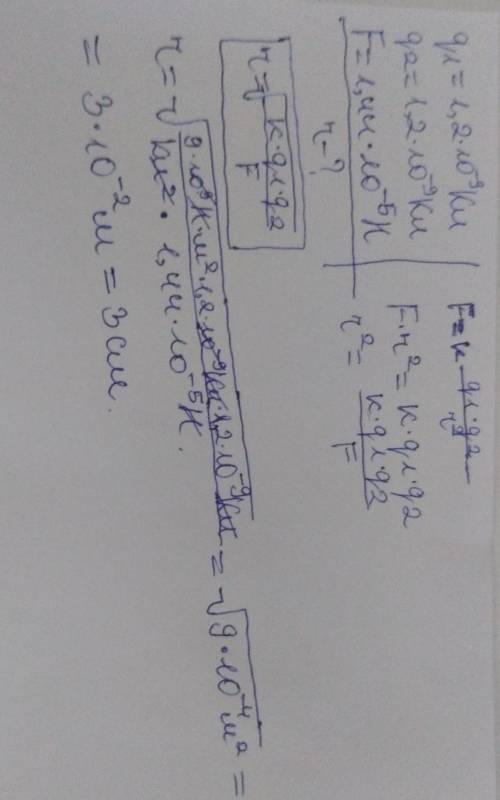 q1 = 1,2·10⁻⁹Кл
q2 = 1,2·10⁻⁹Кл
F = 1,44·10⁻⁵Н
r - ?
F = к · q1·q2 / r²
F·r² = к·q1·q2
r² = к·q1·q2 / F
r = √(к·q1·q2 / F)
r = √(9·10⁹Н·м²·1,2·10⁻⁹Кл·1,2·10⁻⁹Кл / Кл²·1,44·10⁻⁵Н) = √(9·10⁻⁴м²) =
= 3·10⁻²м = 3см.